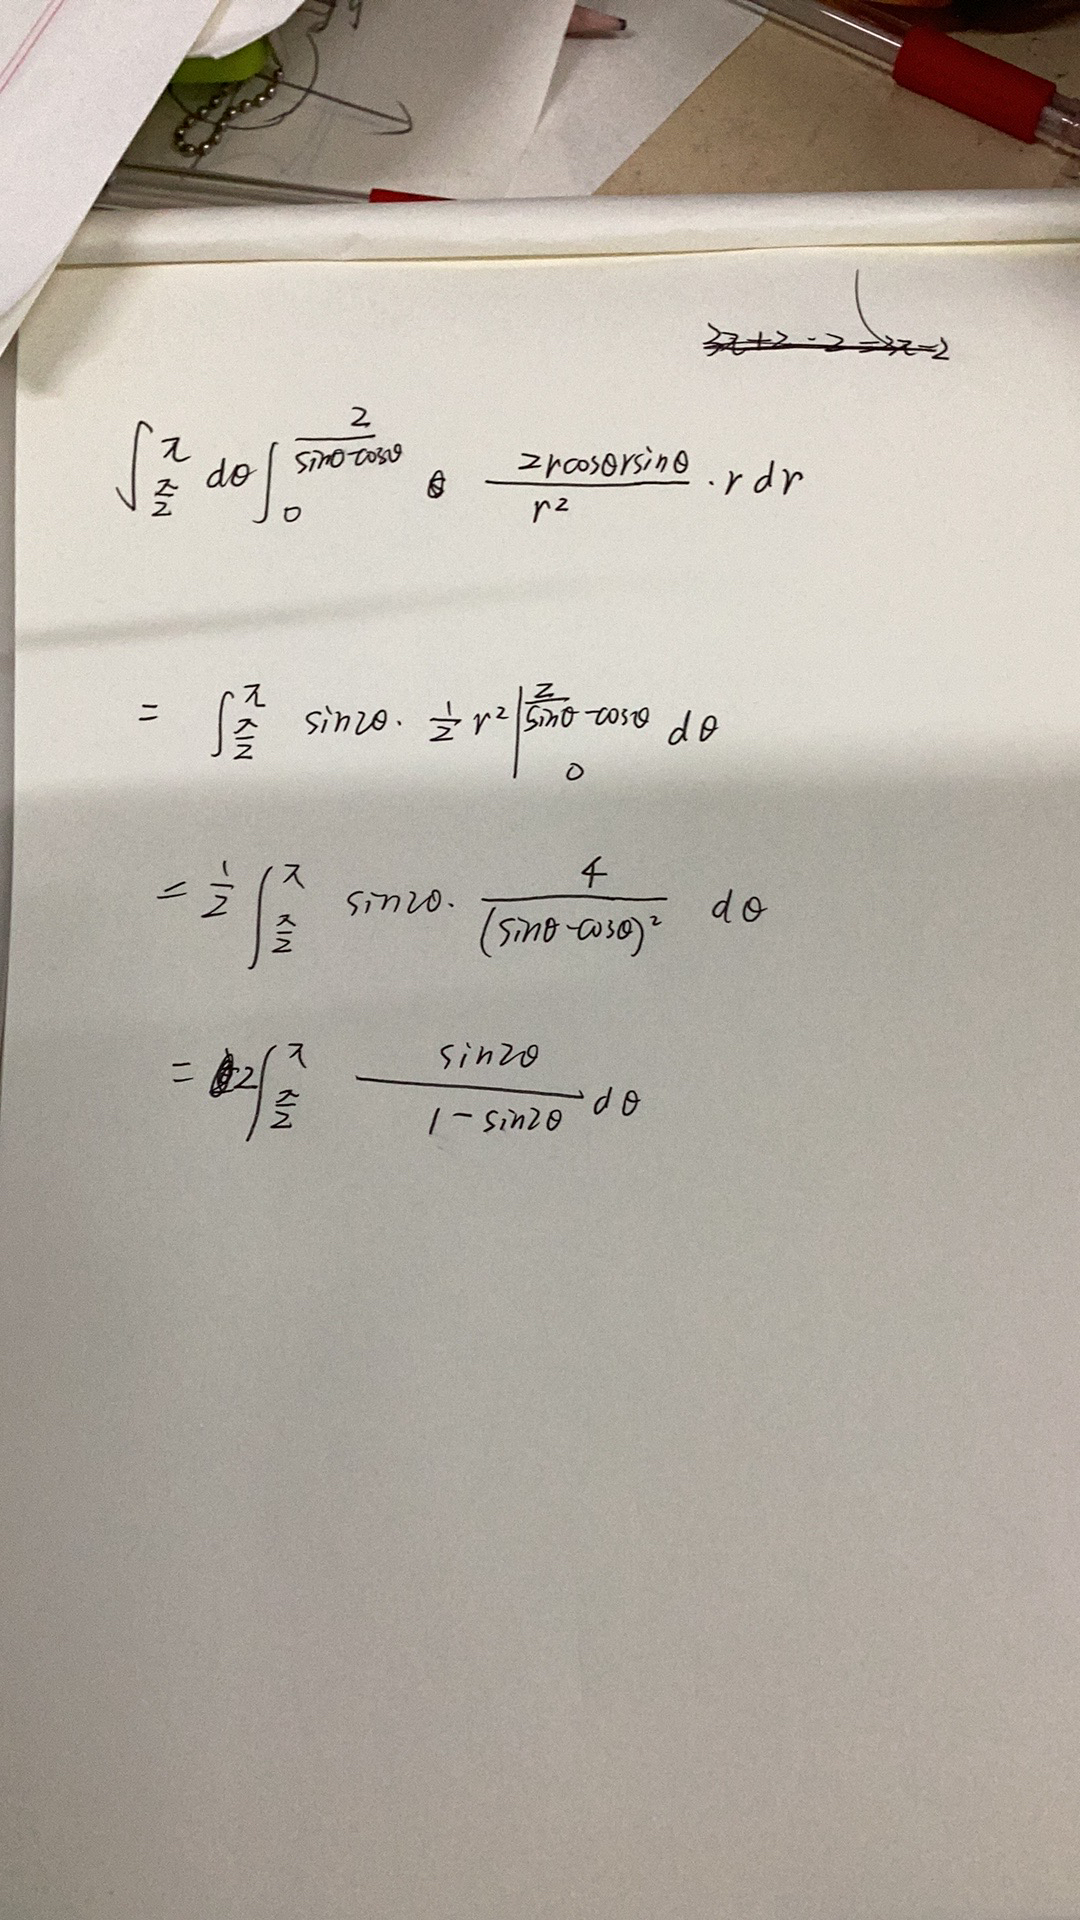 3x+2-2=3x-2
∫_{π/2}^{π} dθ ∫_0^{2/(sinθ-cosθ)} (2rcosθrsinθ)/r² · r dr
= ∫_{π/2}^{π} sin2θ · 1/2 r² |_0^{2/(sinθ-cosθ)} dθ
= 1/2 ∫_{π/2}^{π} sin2θ · 4/(sinθ-cosθ)² dθ
= 2∫_{π/2}^{π} sin2θ/(1-sin2θ) dθ